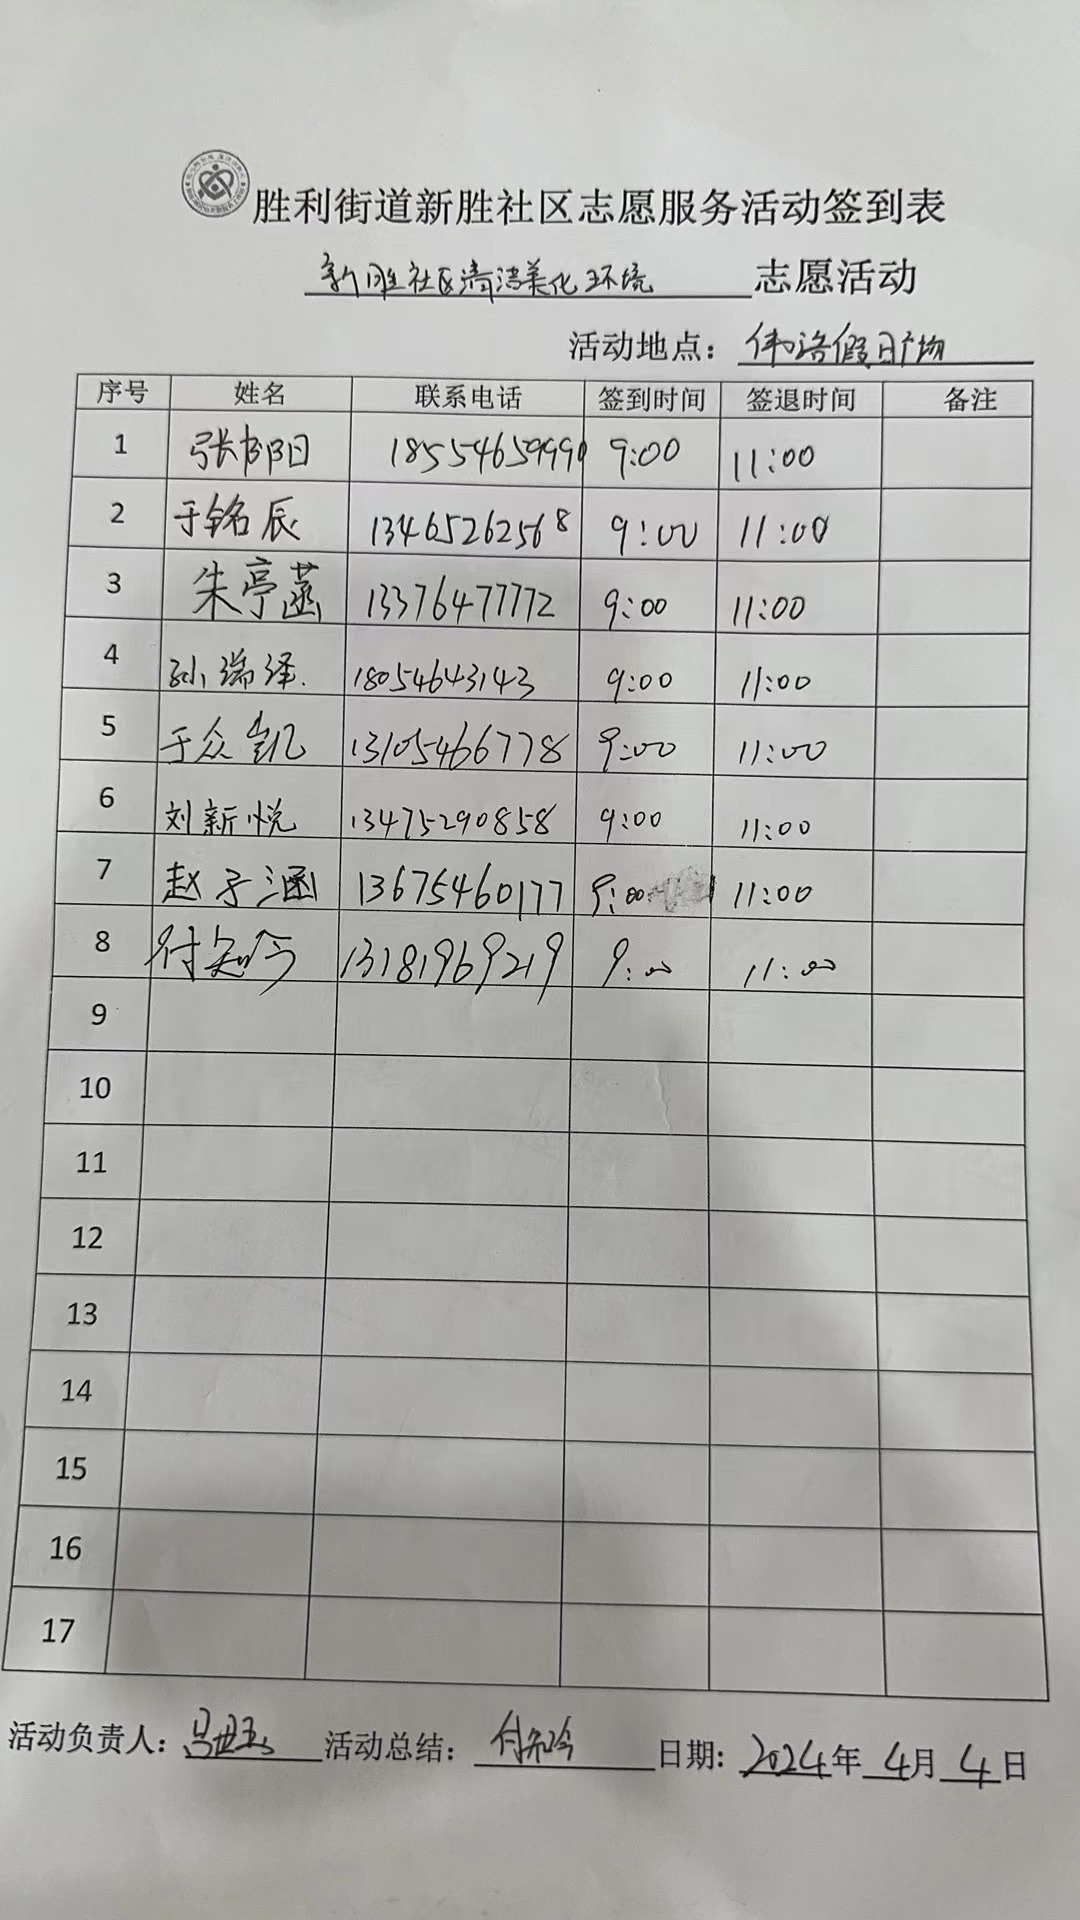 胜利街道新胜社区志愿服务活动签到表
新胜社区清洁美化环境 志愿活动
活动地点：伟浩假日广场
序号 姓名 联系电话 签到时间 签退时间 备注
1 张郎阳 18554659990 9:00 11:00
2 于铭辰 13465262568 9:00 11:00
3 朱亭菡 13376477772 9:00 11:00
4 孙瑞泽 18054643143 9:00 11:00
5 于众凯 13105466778 9:00 11:00
6 刘新悦 13475290858 9:00 11:00
7 赵子涵 13675460177 9:00 11:00
8 付知吟 13181969219 9:00 11:00
9
10
11
12
13
14
15
16
17
活动负责人： 活动总结：付知吟 日期：2024年4月4日